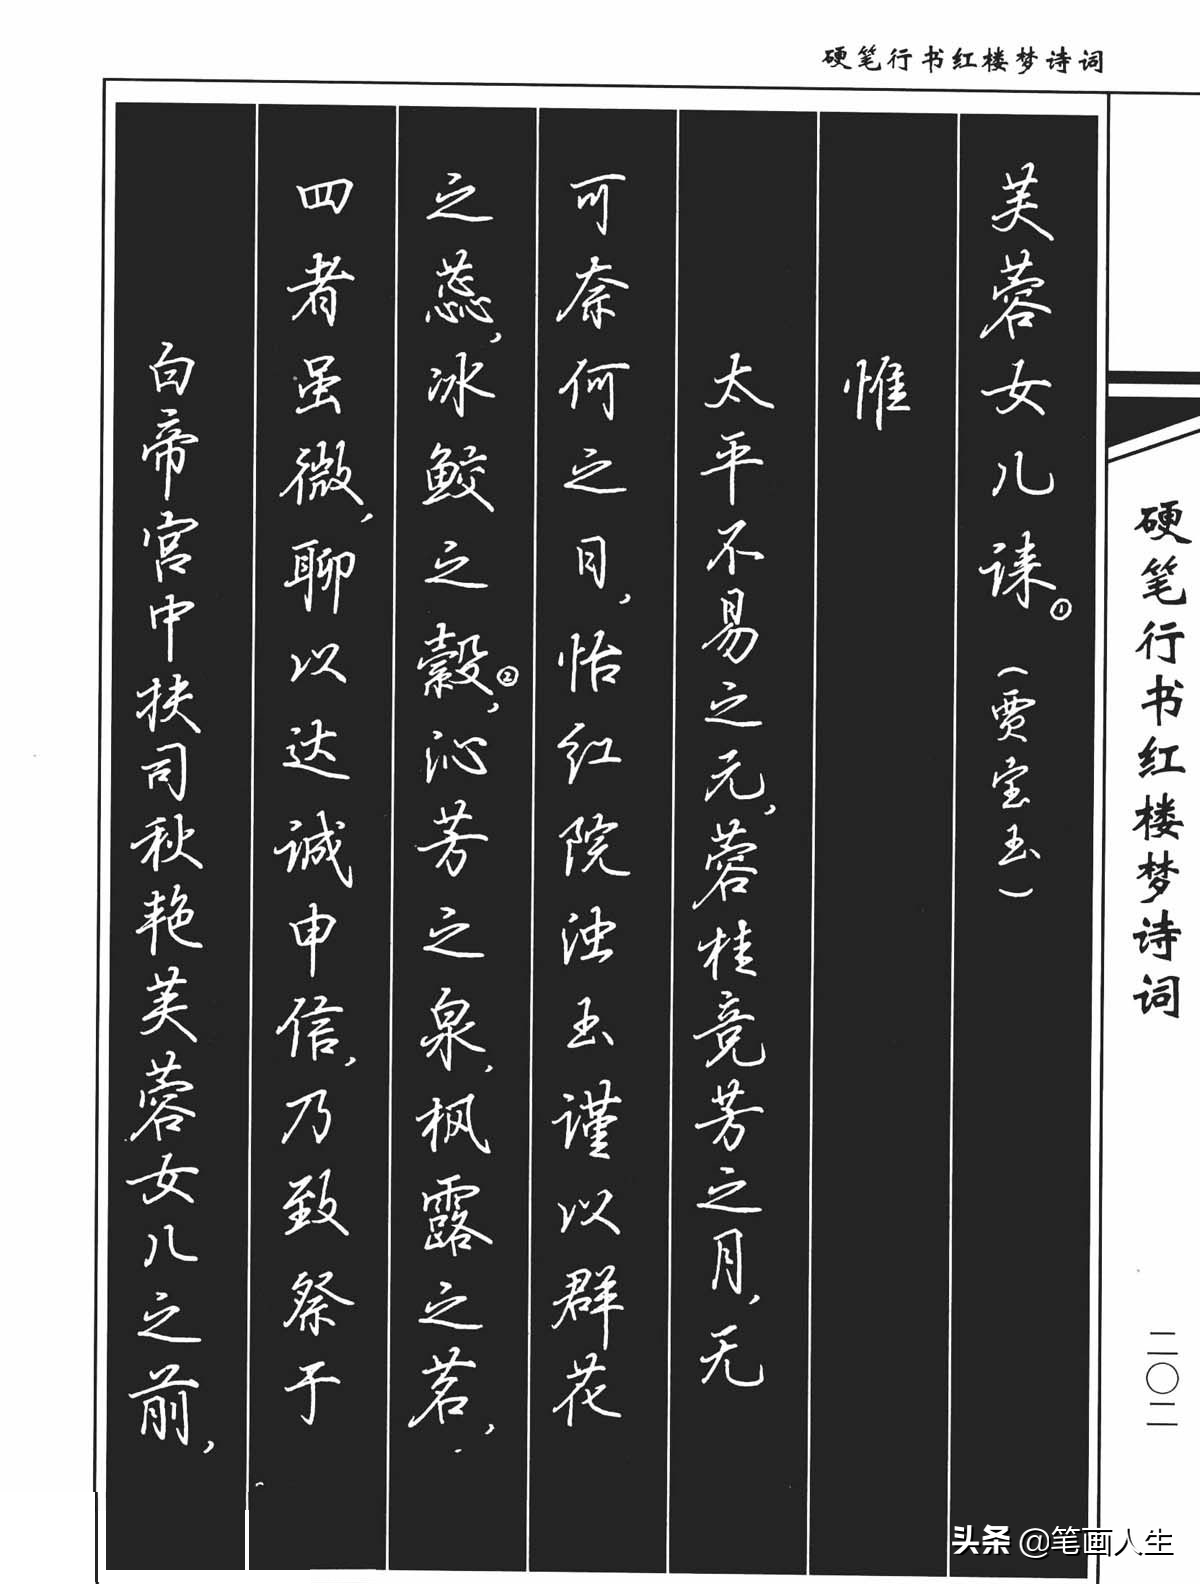 硬笔行书红楼梦诗词
芙蓉女儿诔①（贾宝玉）
惟
太平不易之元，蓉桂竞芳之月，无
可奈何之日，怡红院浊玉谨以群花
之蕊，冰鲛之縠②，沁芳之泉，枫露之茗，
四者虽微，聊以达诚申信，乃致祭于
白帝宫中扶司秋艳芙蓉女儿之前，
硬笔行书红楼梦诗词
二〇二
头条 @笔画人生